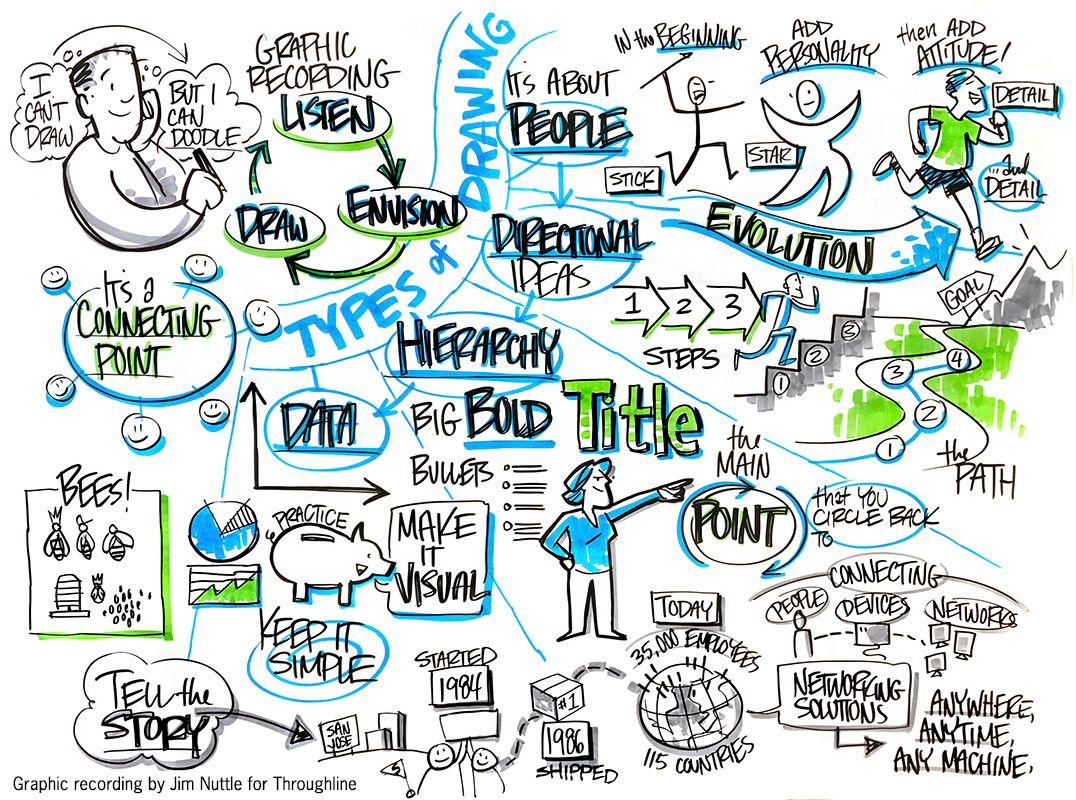 I
CAN'T
DRAW
BUT I
CAN
DOODLE
GRAPHIC
RECORDING
LISTEN
ENVISION
DRAW
TYPES of DRAWING
IT'S ABOUT
PEOPLE
IN the BEGINNING
STICK
ADD
PERSONALITY
STAR
then ADD
ATTITUDE!
DETAIL
...and
DETAIL
EVOLUTION
DIRECTIONAL
IDEAS
1 2 3
STEPS
1
2
3
GOAL
4
3
2
1
the
PATH
IT'S A
CONNECTING
POINT
HIERARCHY
BIG BOLD Title
BULLETS
DATA
the
MAIN
POINT
that YOU
CIRCLE BACK
TO
BEES!
PRACTICE
MAKE
IT
VISUAL
KEEP IT
SIMPLE
TELL the
STORY
SAN
JOSE
STARTED
1984
#1
1986
SHIPPED
TODAY
35,000 EMPLOYEES
115 COUNTRIES
CONNECTING
PEOPLE
DEVICES
NETWORKS
NETWORKING
SOLUTIONS
ANYWHERE,
ANYTIME,
ANY MACHINE.
Graphic recording by Jim Nuttle for Throughline